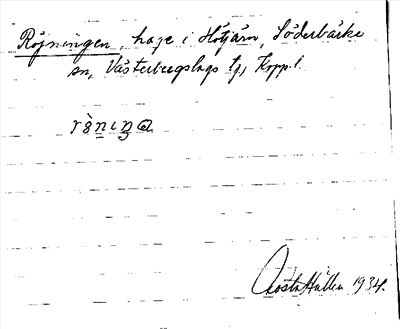 Röjningen, hage i Hötjärn, Söderbärke
sn, Västerbergslags tg, Kopp. l.
Gösta Hållen 1934.